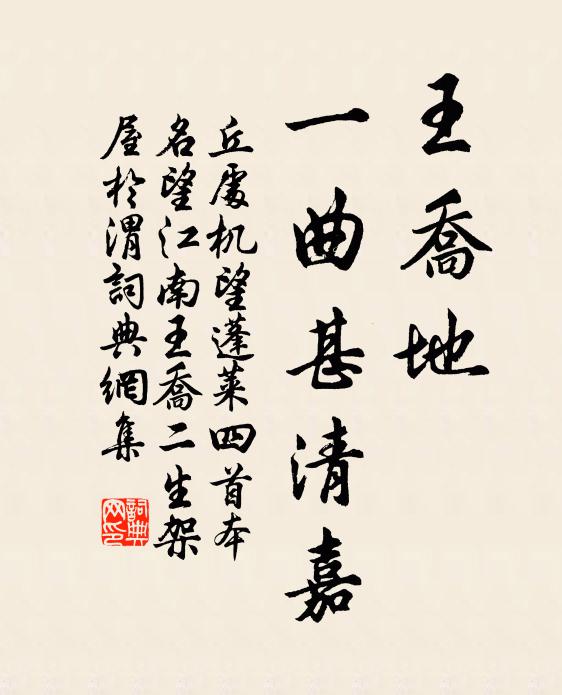 王喬地
一曲甚清嘉
丘處机望蓬萊四首本
名望江南王喬二生架
屋於渭詞典網集
詞典
网印